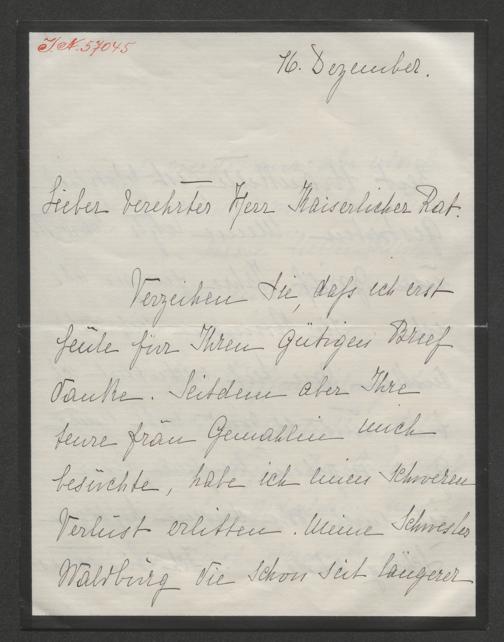 J.N. 57045
16. Dezember.
Lieber verehrter Herr Kaiserlicher Rat.
Verzeihen Sie, dass ich erst
heute für Ihren gütigen Brief
danke. Seitdem aber Ihre
teure Frau Gemahlin mich
besuchte, habe ich einen schweren
Verlust erlitten. Meine Schwester
Waldburg die schon seit längerer